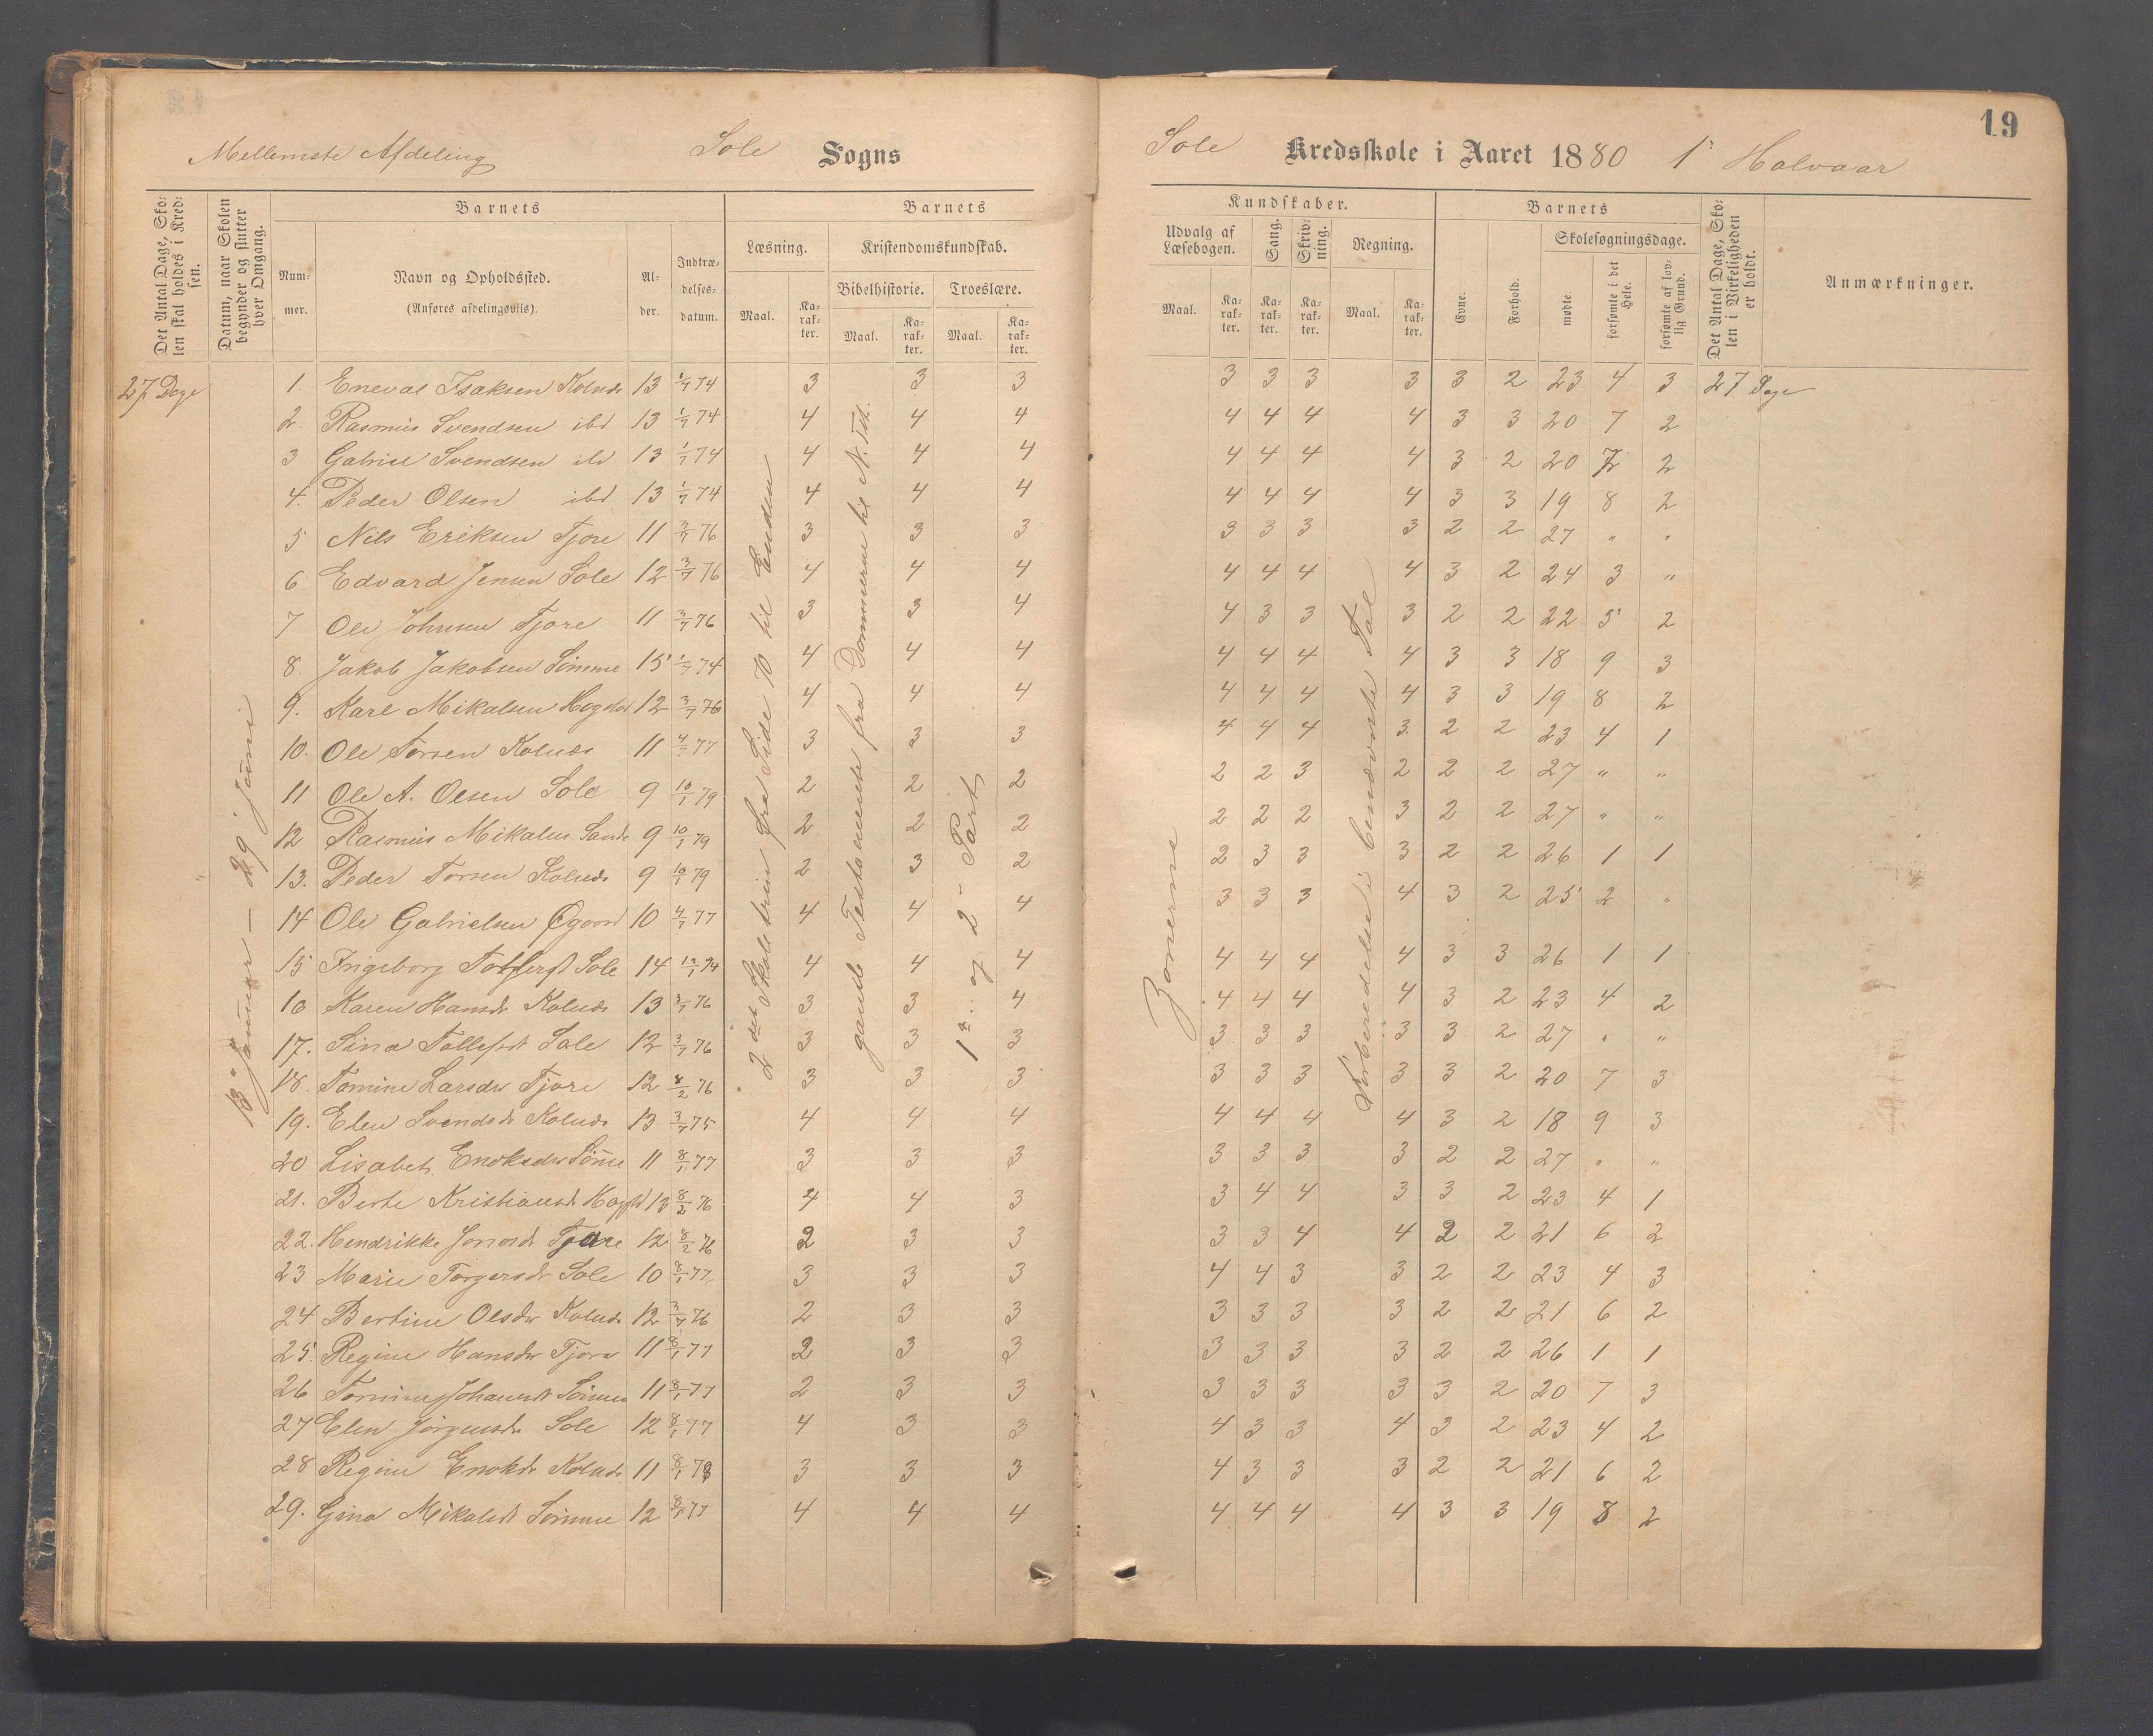 19
Mellemste Afdeling Sole Sogns
Sole Kredsskole i Aaret 1880 1ste Halvaar
Det Antal Dage, Skolen skal holdes i Kredsen.
Datum, naar Skolen begynder og slutter hver Omgang.
Barnets
Nummer.
Navn og Opholdssted.
(Anføres afdelingsviis).
Alder.
Indtrædelsesdatum.
Barnets Kundskaber.
Læsning.
Maal. Karakter.
Kristendomskundskab.
Bibelhistorie. Troeslære.
Maal. Karakter. Maal. Karakter.
Udvalg af Læsebogen.
Maal. Karakter.
Sang.
Karakter.
Skrivning.
Karakter.
Regning.
Maal. Karakter.
Barnets
Evne.
Forhold.
Skolesøgningsdage.
mødte.
forsømte i det Hele.
forsømte af lovlig Grund.
Det Antal Dage, Skolen i Virkeligheden er holdt.
Anmærkninger.
27 Dage
13 Januar – 29 Juni
2det Skoletrin fra Side 70 til Enden
gamle Testamente fra Dommerne til N. Tth.
1ste og 2 Part
Zonerne
Forberedelse i benævnte Tal
1. Eneval Isaksen Kolnes 13 1/7 74 3 3 3 3 3 3 3 3 2 23 4 3 27 Dage
2. Rasmus Svendsen ibd 13 1/7 74 4 4 4 4 4 4 4 3 3 20 7 2
3 Gabriel Svendsen ibd 13 1/7 74 4 4 4 4 4 4 4 3 2 20 7 2
4. Peder Olsen ibd 13 1/7 74 4 4 4 4 4 4 4 3 3 19 8 2
5 Nils Eriksen Tjore 11 3/7 76 3 3 3 3 3 3 3 2 2 27 " "
6 Edvard Jensen Sole 12 3/7 76 4 4 4 4 4 4 4 3 2 24 3 "
7 Ole Johnsen Tjore 11 3/7 76 3 3 4 4 3 3 3 2 2 22 5 2
8. Jakob Jakobsen Sømme 15 1/7 74 4 4 4 4 4 4 4 3 3 18 9 3
9. Karl Mikalsen 12 3/7 76 4 4 4 4 4 4 4 3 3 19 8 2
10. Ole Torsen Kolnes 11 4/7 77 3 3 3 4 4 4 3 2 2 23 4 1
11 Ole A. Olsen Sole 9 10/1 79 2 2 2 2 2 3 2 2 2 27 " "
12 Rasmus Mikalsen Sande 9 10/1 79 2 2 2 2 2 2 3 2 2 27 " "
13. Peder Torsen Kolnes 9 10/1 79 2 3 2 2 3 3 3 2 2 26 1 1
14 Ole Gabrielsen 10 4/7 77 4 4 4 3 3 3 4 3 2 25 2 "
15 Ingeborg Sole 14 12/1 74 4 4 4 4 4 4 4 3 3 26 1 1
16 Karen Hansdr Kolnes 13 3/7 76 3 3 4 4 4 4 4 3 2 23 4 2
17. Sina Tollefsdt Sole 12 3/7 76 3 3 3 3 3 3 3 3 2 27 " "
18. Tomine Larsdr Tjore 12 8/2 76 3 3 3 3 3 3 3 3 2 20 7 3
19. Elen Svendsdr Kolnes 13 3/7 75 4 4 4 4 4 4 4 3 2 18 9 3
20 Lisabet Enoksdr Sømme 11 8/1 77 3 3 3 3 3 3 3 2 2 27 " "
21. Berte Kristiansdt 13 8/2 76 4 4 3 3 4 4 3 3 2 23 4 1
22. Hendrikke Jonasdt Tjore 12 8/2 76 2 3 3 3 3 4 4 2 2 21 6 2
23 Marie Torgersdr Sole 10 8/1 77 3 3 3 4 4 3 3 2 2 23 4 3
24 Bertine Olsdr Kolnes 12 3/7 76 2 3 3 3 3 3 3 2 2 21 6 2
25. Regine Hansdr Tjora 11 8/1 77 2 3 3 3 3 3 3 2 2 26 1 1
26 Tomine Johannesdt Sømme 11 8/1 77 2 3 3 3 3 3 3 3 2 20 7 3
27 Elen Jørgensdr Sole 12 8/1 77 4 3 3 4 3 3 4 3 2 23 4 2
28 Regine Enoksdr Kolnes 11 8/1 78 3 3 3 4 3 3 3 2 2 21 6 2
29. Gina Mikalsdt Sømme 12 8/1 77 4 4 4 4 4 4 4 3 3 19 8 2